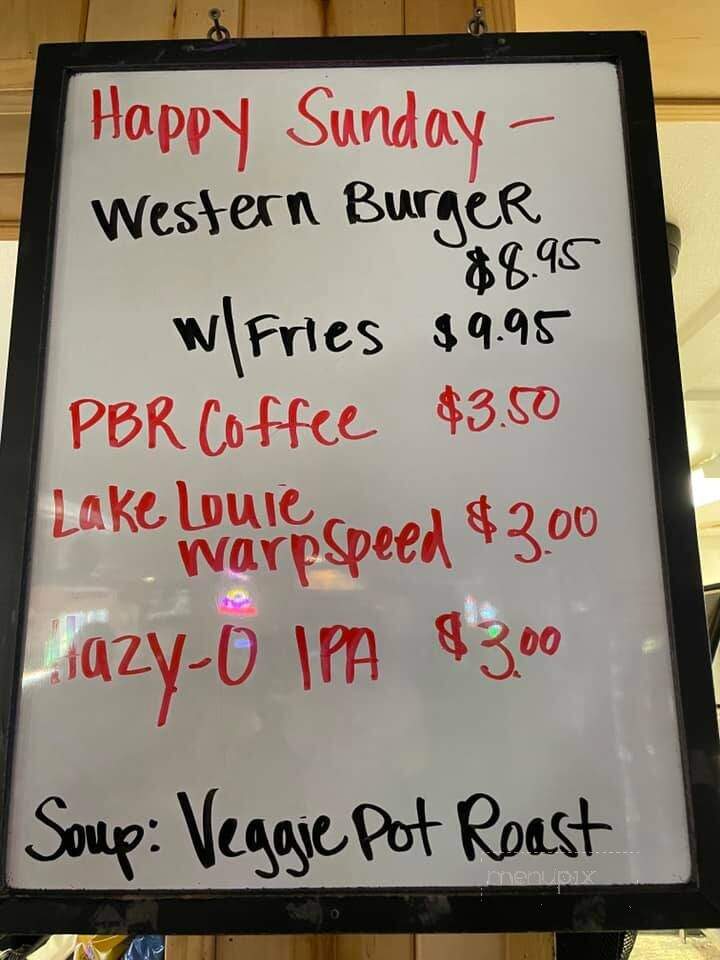 Happy Sunday -
Western Burger
$8.95
w/Fries $9.95
PBR Coffee $3.50
Lake Louie
Warpspeed $3.00
Hazy-O IPA $3.00
Soup: Veggie Pot Roast
menupix